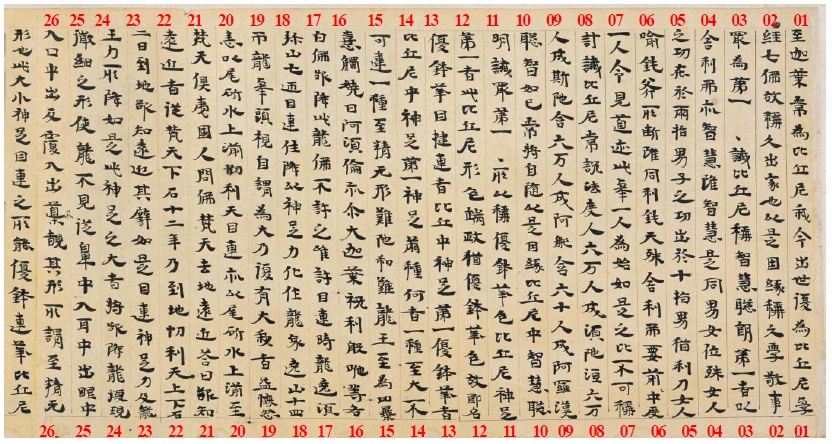 01 至迦葉常為比丘尼我今出世復為比丘尼學 01
02 經七佛故稱久出家也以是因緣稱久學敬事 02
03 眾為第一、識比丘尼稱智慧聰朗第一者以 03
04 舍利弗亦智慧誰智慧是同男女位殊女人 04
05 之功在於兩指男子之功出於十指男猶利刀女人 05
06 喻鈍斧所斷雖同利鈍天殊舍利弗要前中度 06
07 一人令見道迹此舉一人為始如是之比不可稱 07
08 計識比丘尼常說法度人六万人成須陀洹六万 08
09 人成斯陀含六万人成阿那含六十人成阿羅漢 09
10 聰智如已常將自隨以是因緣比丘尼中智慧聰 10
11 明識眾第一、所以稱優鉢華色比丘尼神足 11
12 第一者此比丘尼形色端政猶優鉢華色故即名 12
13 優鉢華目揵連者比丘中神足第一優鉢華者 13
14 比丘尼中神足第一神足萬種何者一種至大一不 14
15 可連一種至精无形難陀和難龍王至為凶暴 15
16 意觸嬈日阿須倫亦尒大迦葉祝利般咃等各 16
17 白佛欲降此龍佛不許之唯許目連時龍遶須 17
18 弥山七迊目連往降以神足力化作龍身遶山十四 18
19 帀龍舉頭視自謂為大乃復有大我者益懷忿 19
20 恚以尾斫水上滿忉利天目連亦以尾斫水上滿至 20
21 梵天俱夷國人問佛梵天去地遠近荅曰欲知 21
22 遠近者從梵天下石十二年乃到地忉利天上下石 22
23 二日到地欲知遠近其譬如是目連神足力及龍 23
24 王力所降如是此神足之大者將欲降龍復現 24
25 微細之形使龍不見從鼻中入耳中出眼中 25
26 入口中出反覆入出莫覩其形所謂至精无 26
形也此大小神足目連之所能優鉢連華比丘尼